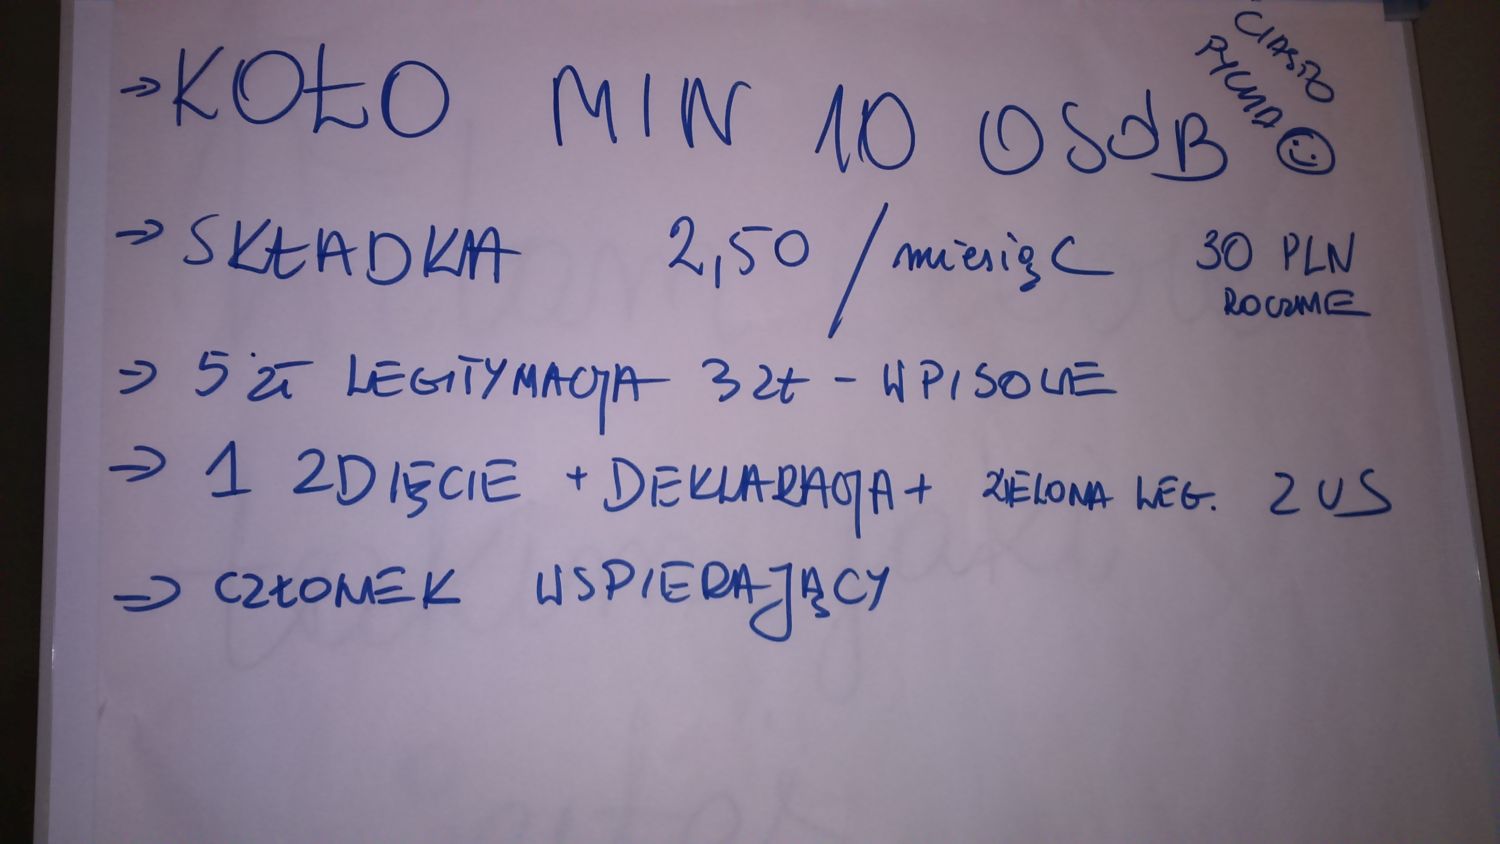 CIASTO
PYCHA
→ KOŁO MIN 10 OSÓB
→ SKŁADKA 2,50 / miesiąc 30 PLN
ROCZNIE
→ 5 zł LEGITYMACJA 3 zł - WPISOWE
→ 1 ZDJĘCIE + DEKLARACJA + ZIELONA LEG. ZUS
→ CZŁONEK WSPIERAJĄCY